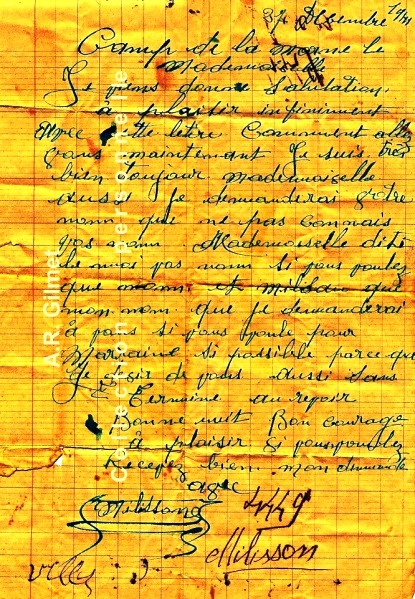 27 Desembre 19
Camp de la mane le
Mademoiselle
Je viens donne Salutation
à plaisir infiniment
Avec cette lètre Commment alle
vous maintenant Je suis très
bien toujour Mademaiselle
aussi Je demanderai votre
nomm que ne pas Connais
vos nomm Mademosselle dite
le moi vos nomm Si vous voulez
que nomm et que
mon nom que Je demanderai
à vous Si vous voule pour
Marraine Si passible parce que
Je de vous aussi Sans
Termine au revoir
Bonne nuit Bon Courage
à plaisir Si vous voulez
Recevez bien mon
avec
4449
Milisson
A.R. Gilmet
Collection personnelle